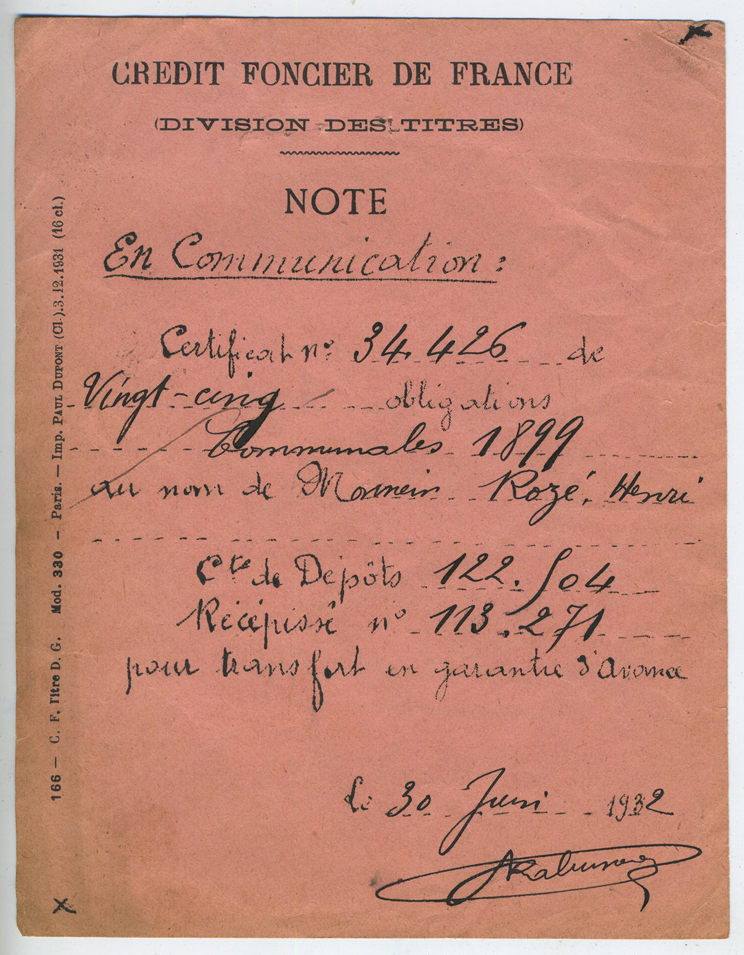 CREDIT FONCIER DE FRANCE
(DIVISION DES TITRES)
NOTE
En Communication :
Certificat n° 34.426 de
Vingt-cinq obligations
Communales 1899
au nom de Rozé, Henri
Cte de Dépôts 122.504
Récépissé n° 113.271
pour transfert en garantie d'avance
le 30 Juin 1932
166 — C. F. Titre D. G. Mod. 330 — Paris. — Imp. PAUL DUPONT (Cl.).3.12.1931 (16 cl.)